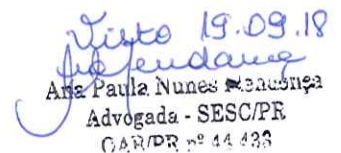 Visto 19.09.18
Ana Paula Nunes
Advogada - SESC/PR
OAB/PR nº 44.433